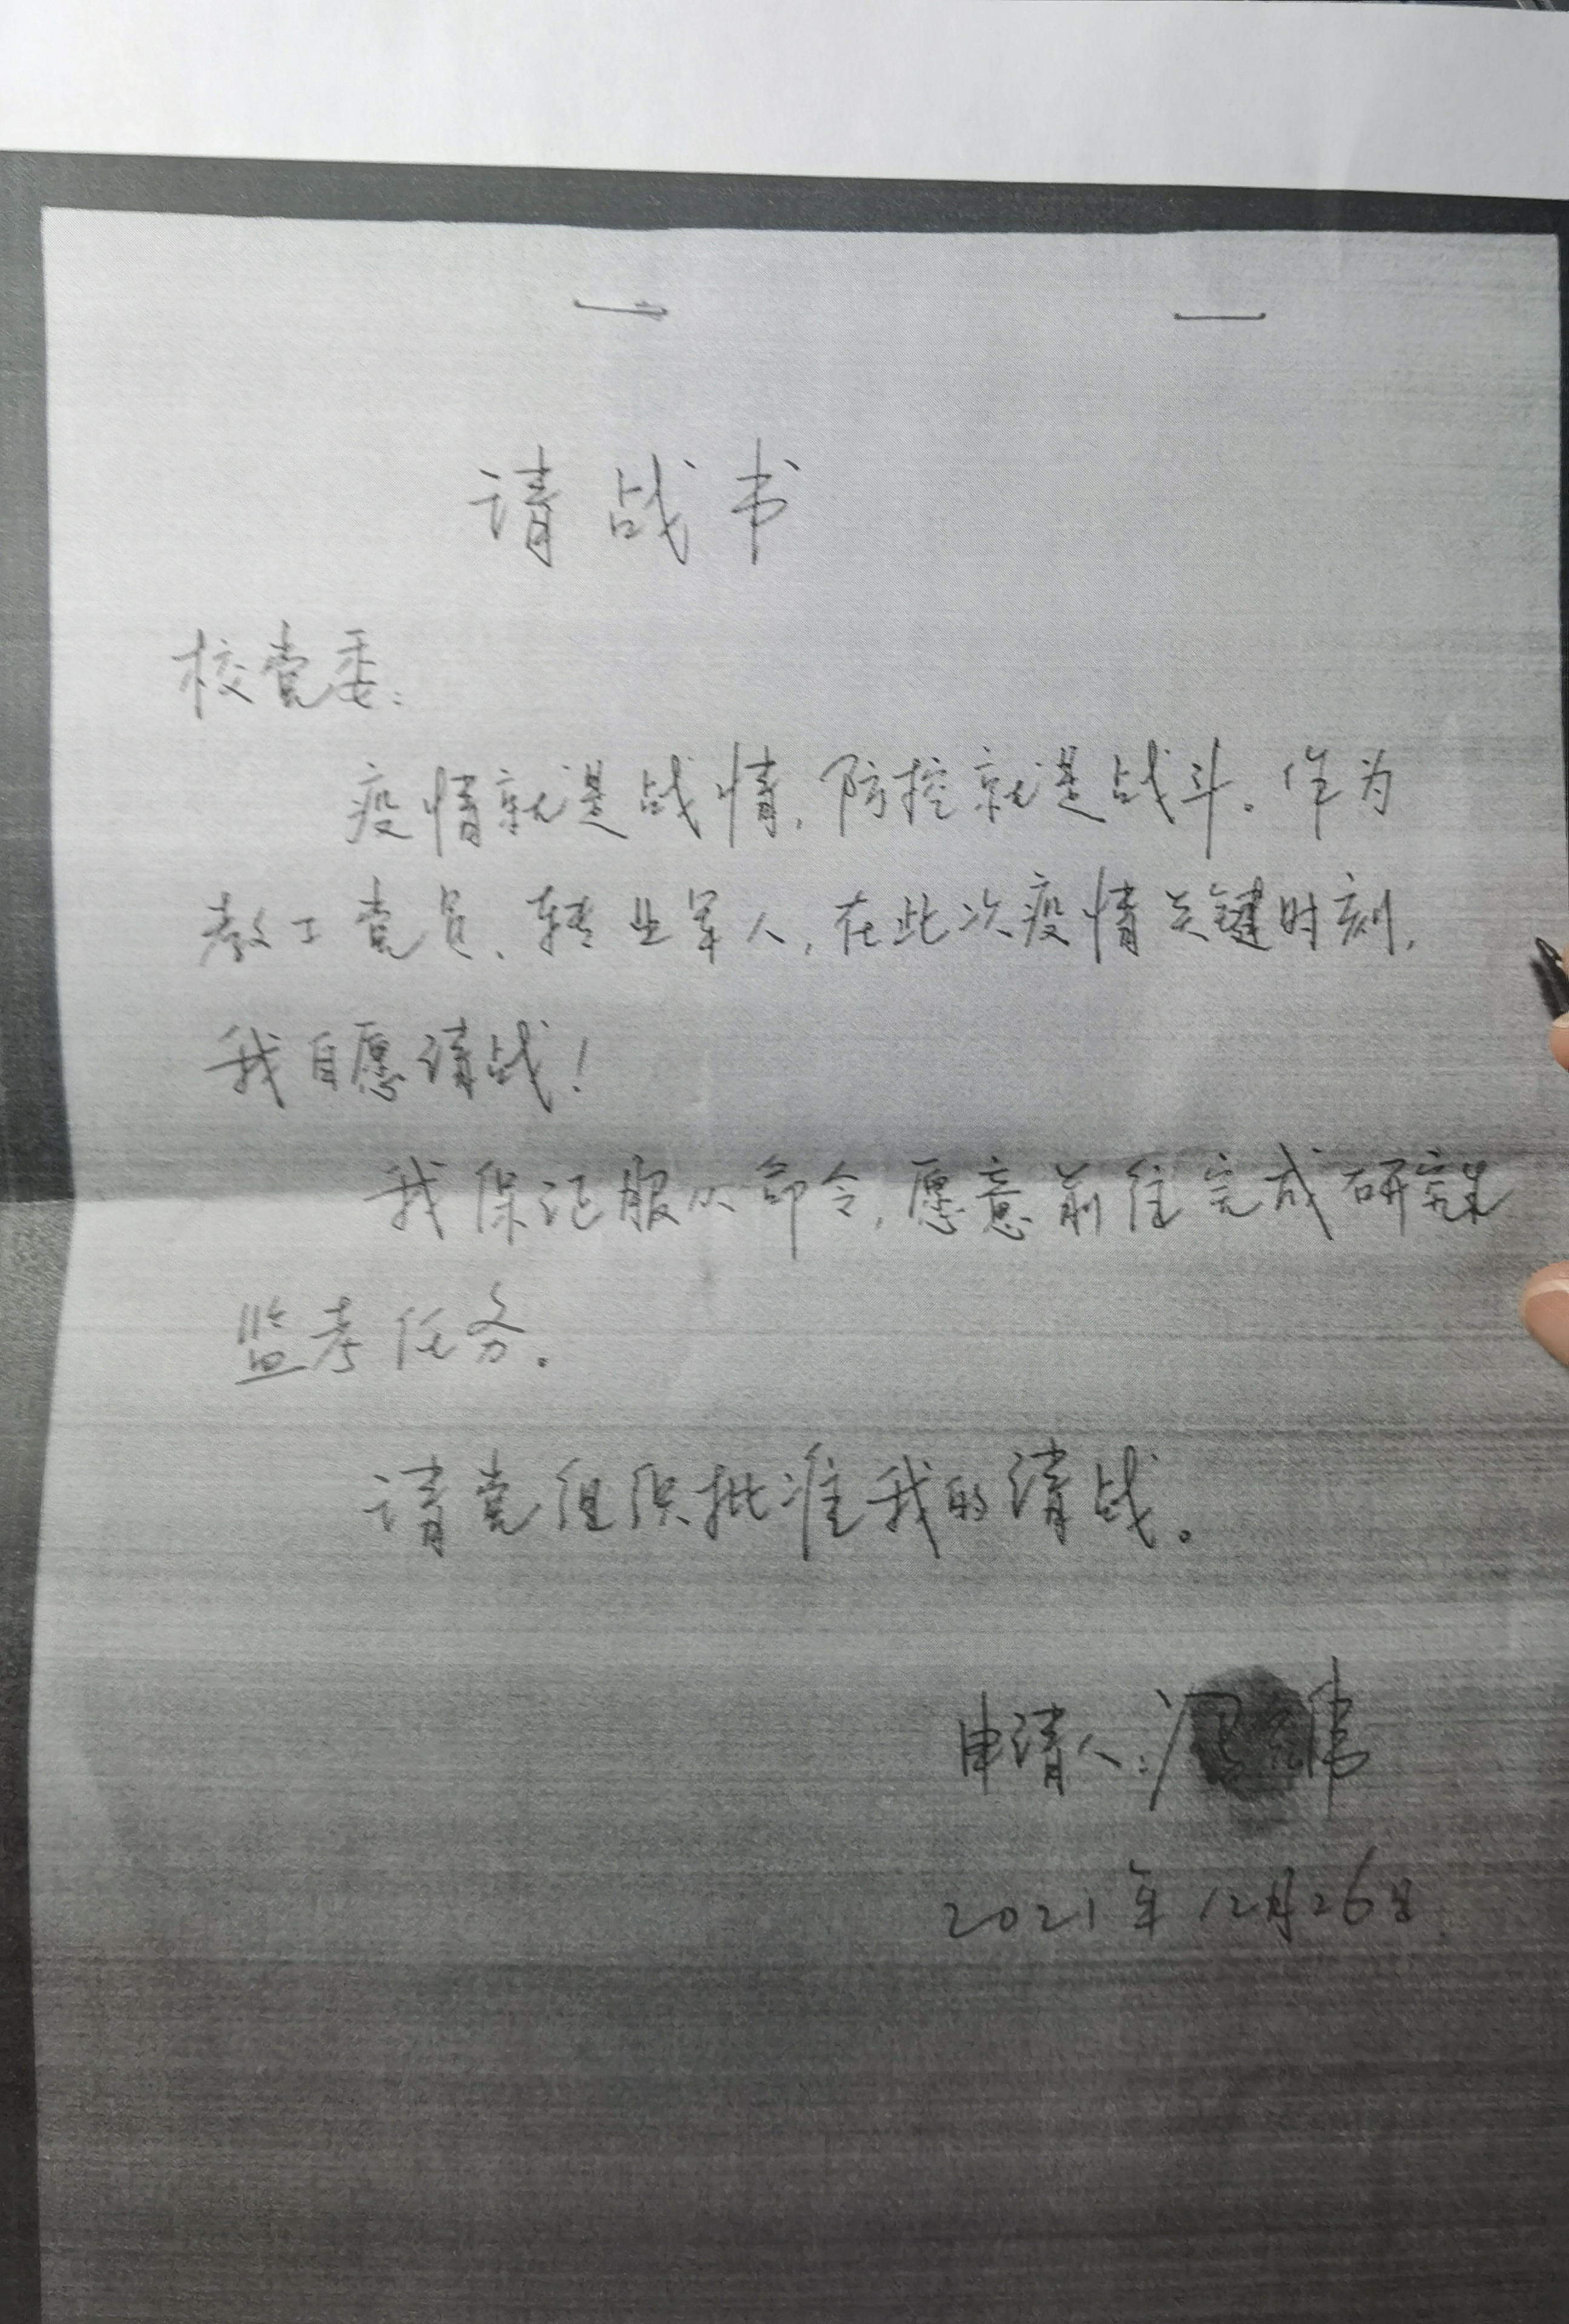 请战书
校党委：
疫情就是战情，防控就是战斗。作为
教工党员、转业军人，在此次疫情关键时刻，
我自愿请战！
我保证服从命令，愿意前往完成研究生
监考任务。
请党组织批准我的请战。
申请人：
2021年12月26日